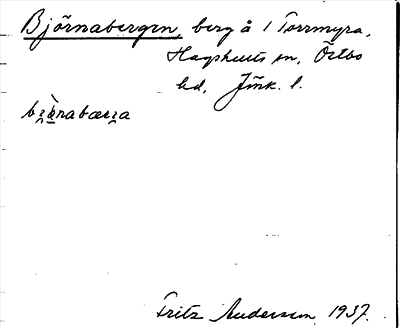 Björnabergen, berg å 1 Torrmyra,
Hagshults sn, Östbo
hd, Jmk. l.
Fritz Andersson 1937.